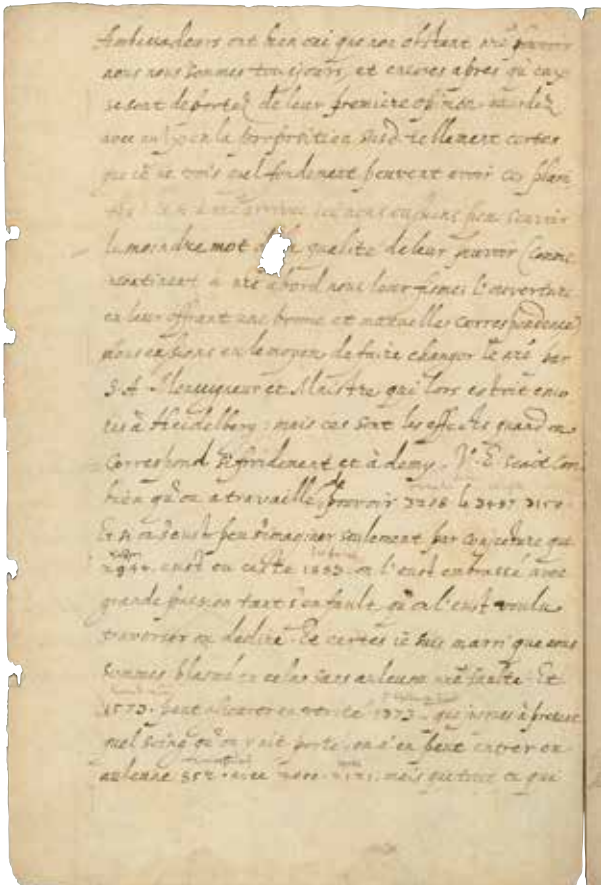 Ambassadeurs ont bien oui que non obstant nre pouvoir
nous nous sommes tousjours, et encores apres qu'eux
se sont deportez de leur premiere opinion
avec eux en la proposition susd. tellement certes
que ie ne vois quel fondement peuvent avoir ces plain
arrivee icy nous eussions peu scavoir
le moindre mot de la qualite de leur pouvoir (comme
à nre abord nous leur fismes l'ouverture
en leur offrant une bonne et mutuelles correspondence)
nous eussions eu le moyen de faire changer le nre par
S. A. Monseigneur et Maistre qui lors estoit enco
res à Heidelberg: mais ces sont les effects quand on
correspond si froidement et à demy. V. E. scait com
bien qu'on a travaillé pouvoir 3216 le 3497 3150
Et si on s'eust peu imaginer seulement par conjecture que
2944 eust eu ceste 1883 on l'eust embrassé avec
grande passion tant s'en fault qu'on l'eust voulu
traverser ou dedire. Et certes ie suis marri que nous
sommes blasmé en cela sans aulcune nre faulte. Et
1573 peut asseurer en verité 1373 que iusques à present
quel soing qu'on y ait porté on n'en peut entrer en
aulcune 352 avec mais que tout ce qui